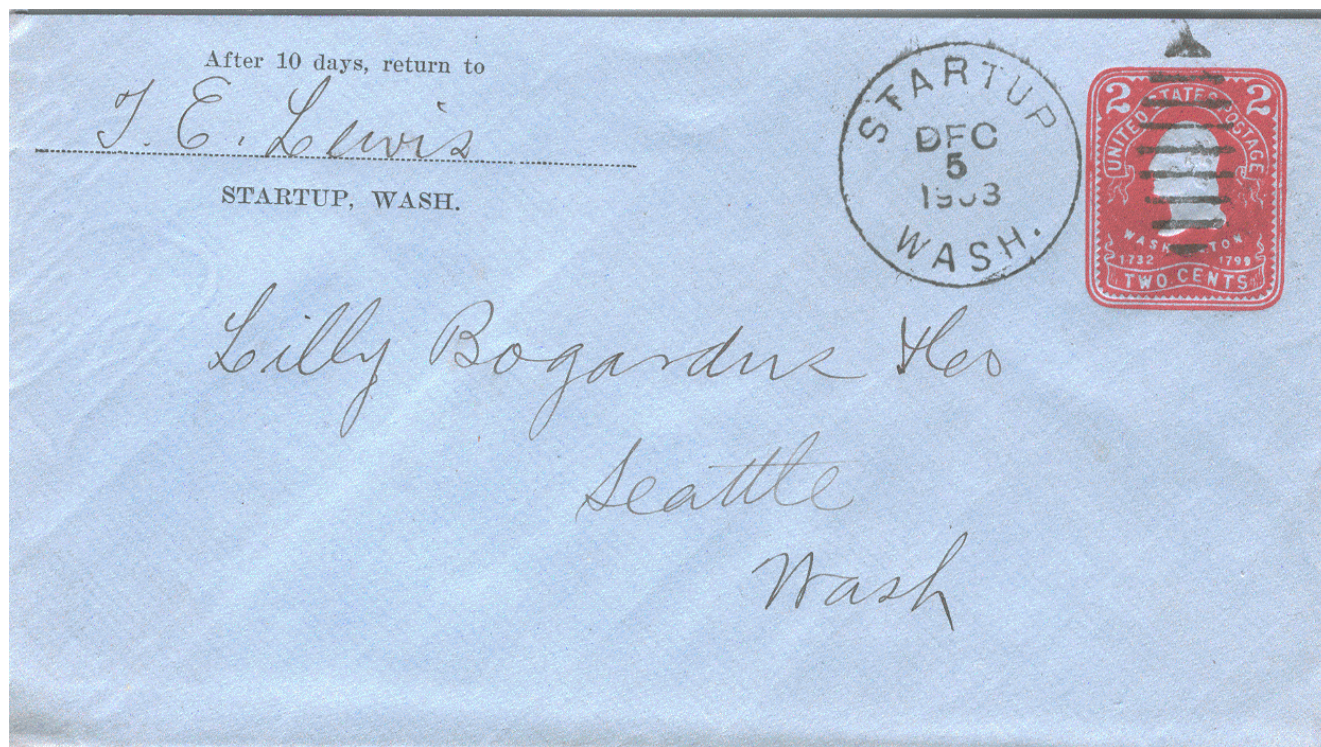 After 10 days, return to
T. E. Lewis
STARTUP, WASH.
STARTUP
DEC
5
1903
WASH.
2 2
UNITED STATES POSTAGE
WASHINGTON
1732 1799
TWO CENTS
Lilly Bogardus & Co
Seattle
Wash